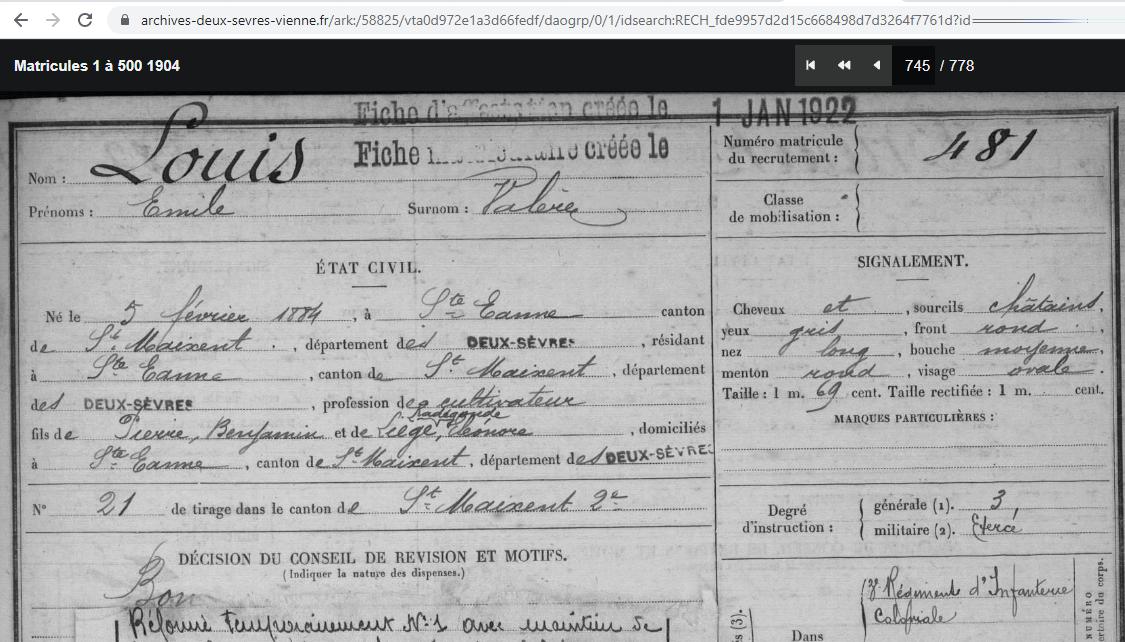 archives-deux-sevres-vienne.fr/ark:/58825/vta0d972e1a3d66fedf/daogrp/0/1/idsearch:RECH_fde9957d2d15c668498d7d3264f7761d?id
Matricules 1 à 500 1904
745 / 778
Fiche d'affectation créée le 1 JAN 1922
Fiche créée le
Nom : Louis
Prénoms : Emile Surnom : Valère
Numéro matricule du recrutement : 481
Classe de mobilisation :
ÉTAT CIVIL.
Né le 5 février 1884, à Ste Eanne canton
de St Maixent, département des DEUX-SÈVRES, résidant
à Ste Eanne, canton de St Maixent, département
des DEUX-SÈVRES, profession de cultivateur
Radégonde
fils de Pierre, Benjamin et de Liège, Eléonore, domiciliés
à Ste Eanne, canton de St Maixent, département des DEUX-SÈVRES
N° 21 de tirage dans le canton de St Maixent 2e
DÉCISION DU CONSEIL DE REVISION ET MOTIFS.
(Indiquer la nature des dispenses.)
Bon
Réformé temporairement N°1 avec maintien de
SIGNALEMENT.
Cheveux et, sourcils châtains,
yeux gris, front rond,
nez long, bouche moyenne,
menton rond, visage ovale.
Taille : 1 m. 69 cent. Taille rectifiée : 1 m. cent.
MARQUES PARTICULIÈRES :
Degré d'instruction :
générale (1). 3,
militaire (2). Exercé
3e Régiment d'Infanterie
Coloniale
Dans
is (3).
NUMÉRO
toire du corps.